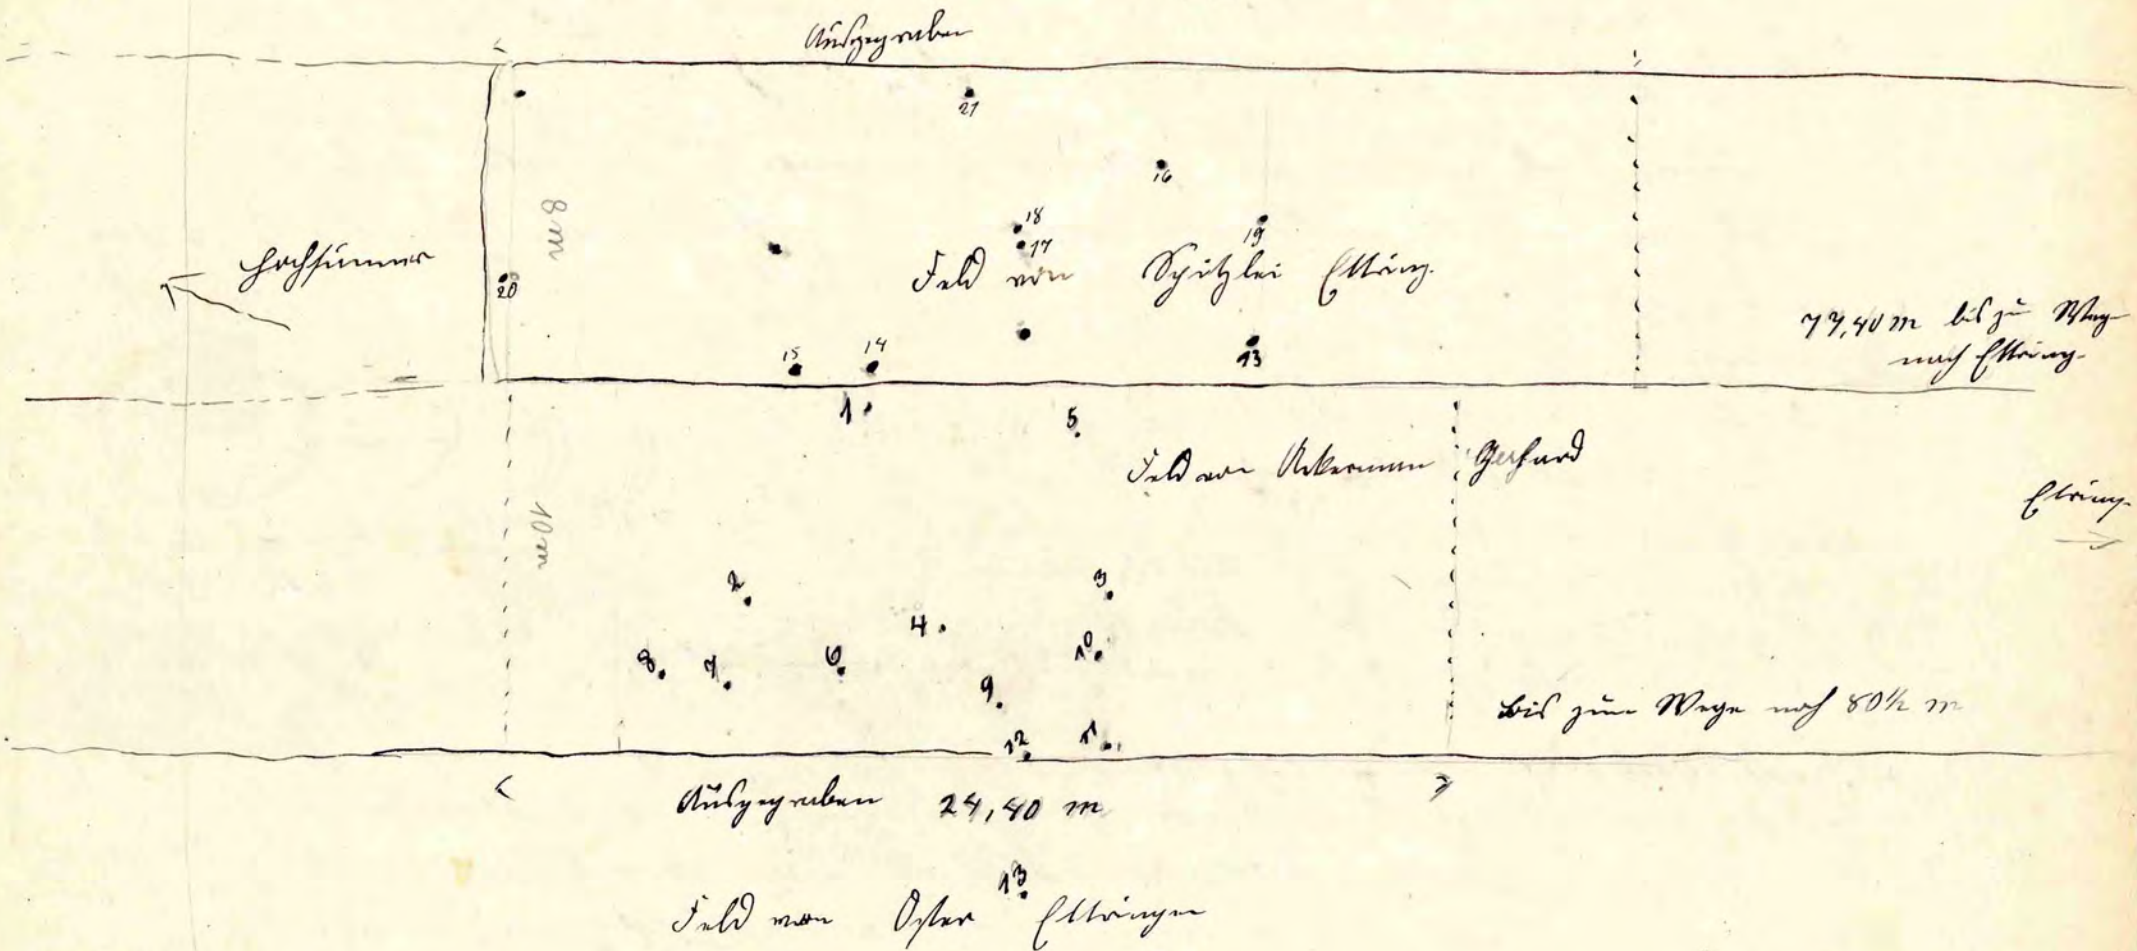 Ausgegraben
21
16
18
17
19
8 m
Hochsimmer
20
Feld von Spitzlei Ettring.
77,40 m bis zu Weg
nach Ettring.
15
14
13
1
5
Feld von Ackermann Gerhard
Etring.
10 m
2
3
4
10
8
7
6
9
bis zum Wege noch 80 1/2 m
12
11
Ausgegraben 24,40 m
13
Feld von Oster Ettringen